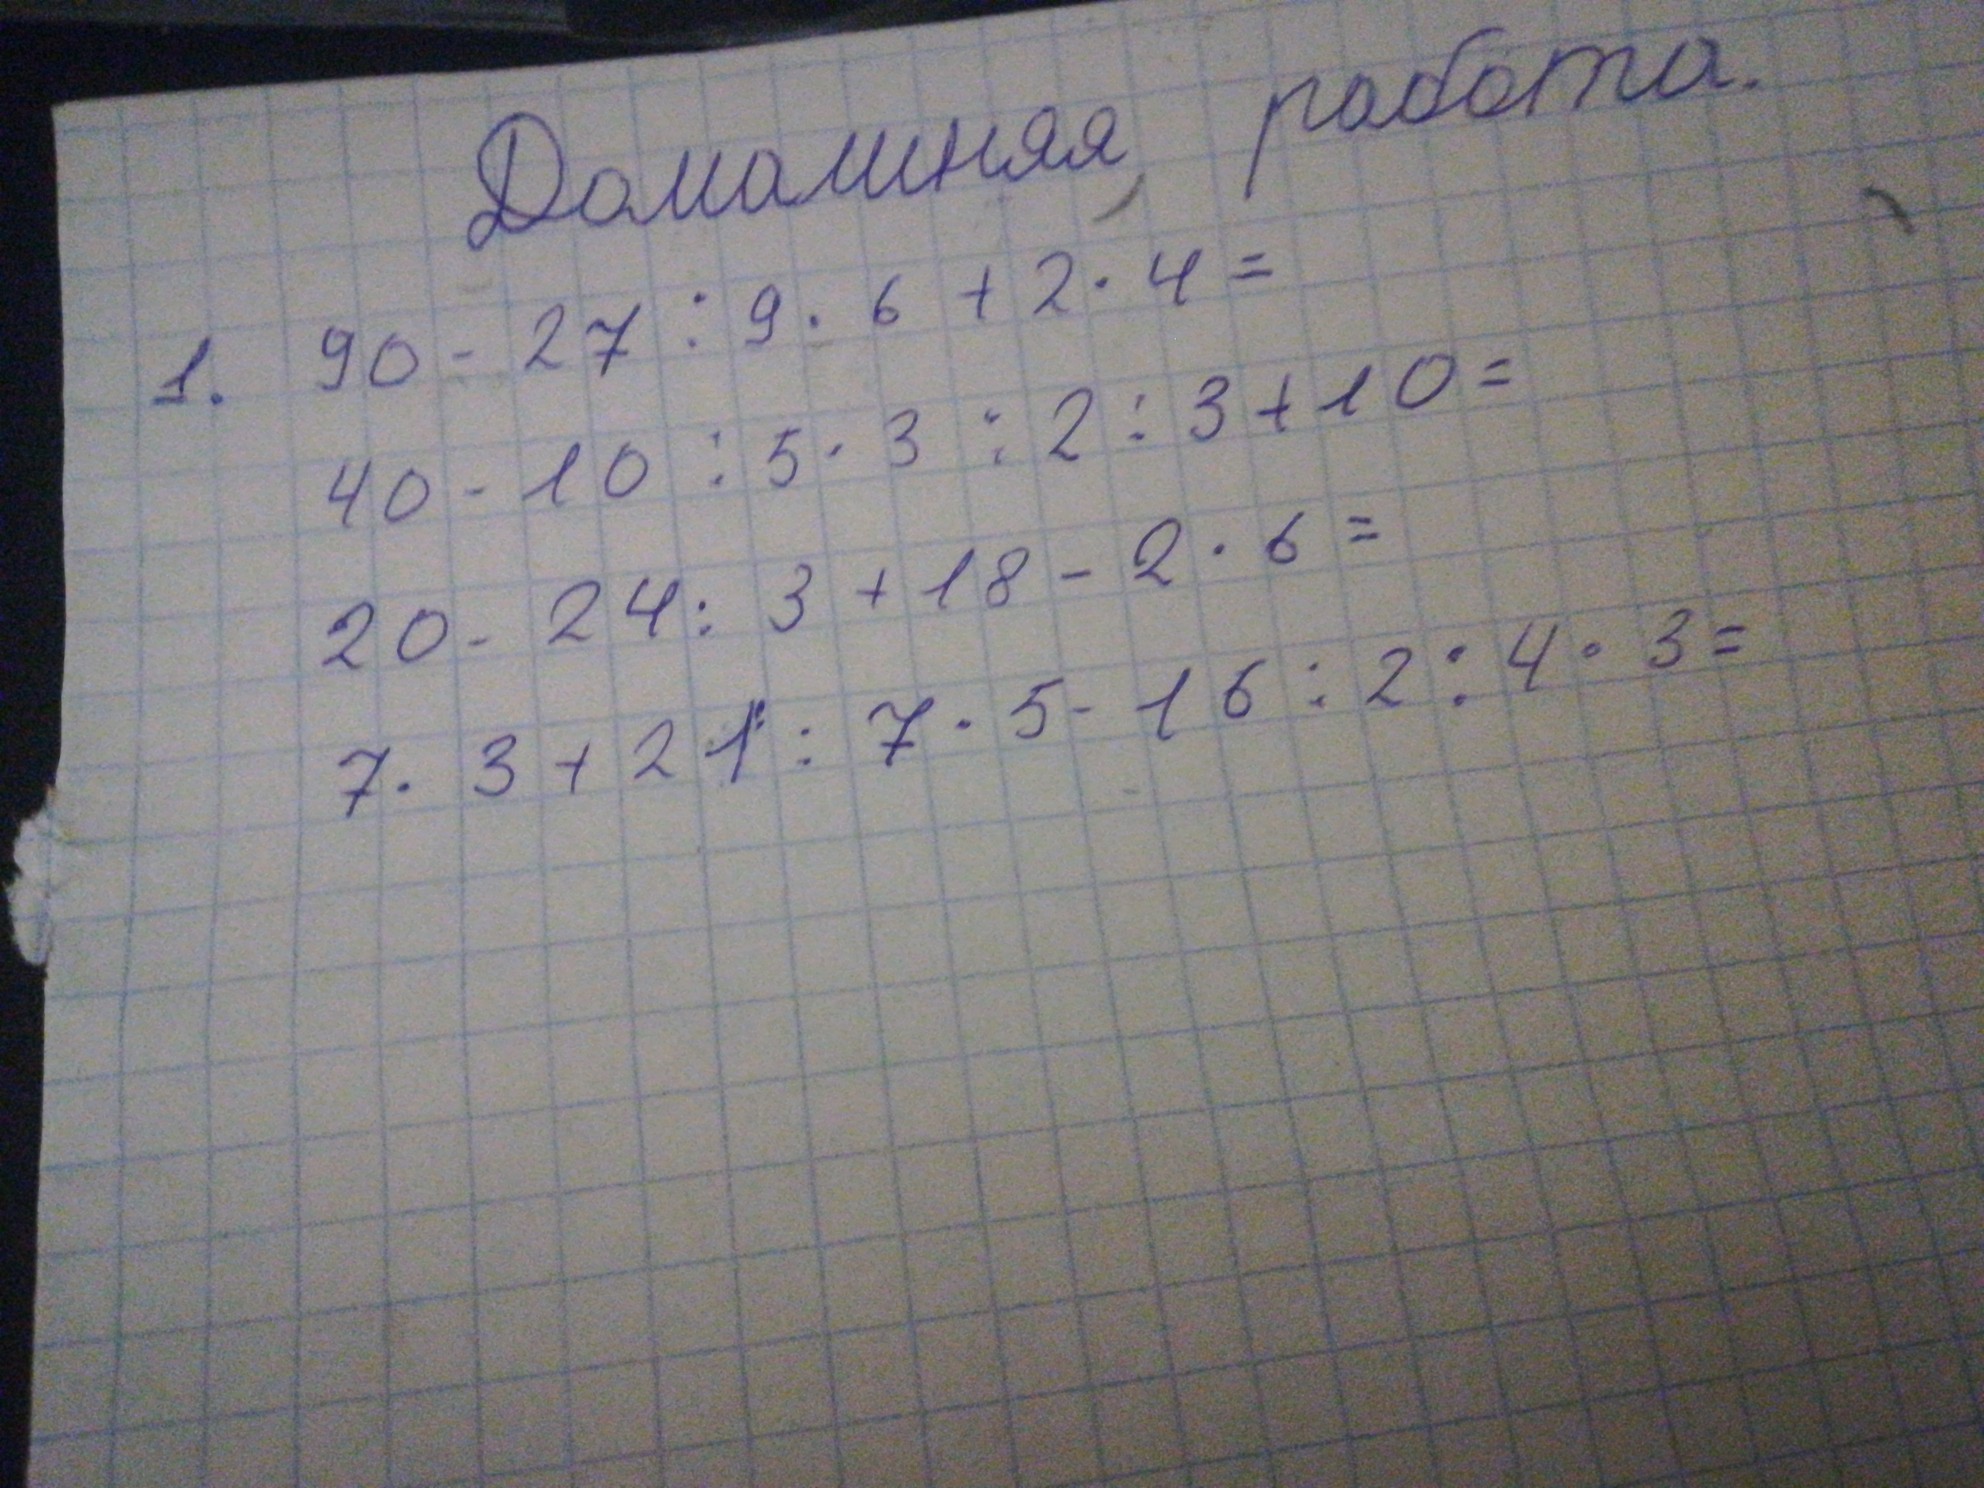 Домашняя работа.
1. 90 - 27 : 9 · 6 + 2 · 4 =
40 - 10 : 5 · 3 : 2 : 3 + 10 =
20 - 24 : 3 + 18 - 2 · 6 =
7 · 3 + 21 : 7 · 5 - 16 : 2 : 4 · 3 =